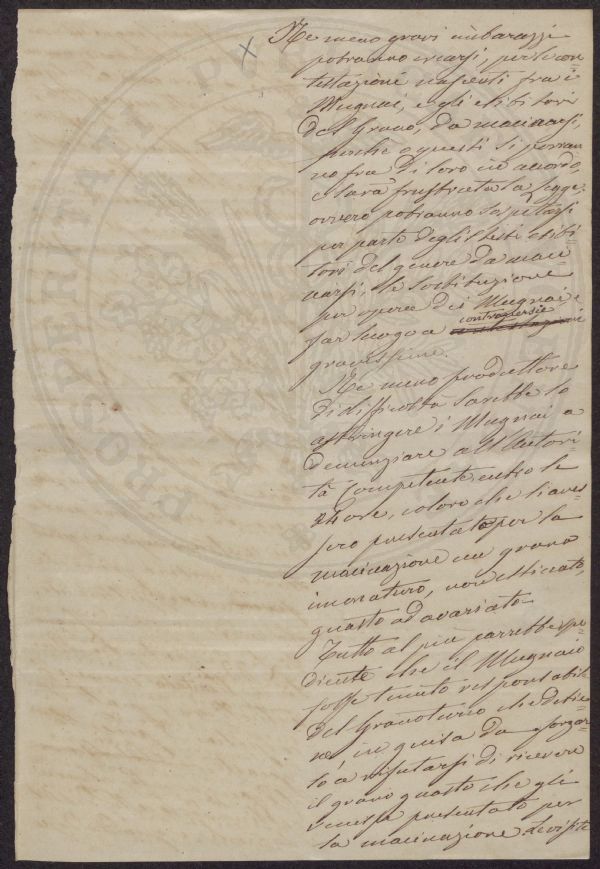 Ne meno gravi imbarazzi
potranno crearsi, per le con=
testazioni nascenti fra i
Mugnai, e gli esibitori
del Grano, da macinarsi,
perche o questi si porran=
no fra di loro in accordo,
e sarà frustrata la legge,
ovvero potranno sospettarsi
per parte degli stessi esibi=
tori del genere da maci=
narsi, le sostituzione
per opera dei Mugnai e
far luogo a controversie
gravissime.
Ne meno produttore
di difficoltà sarebbe lo
astringere i Mugnai a
denunziare all'Autori=
tà Competente entro le
24 ore, coloro che li aves=
sero presentato per la
macinazione un grano
immaturo, non essiccato,
guasto ad avariato
Tutto al più parrebbe spe=
diente che il Mugnaio
fosse tenuto responsabile
del Granoturco che detie=
ne, in guisa da sforzar=
lo a rifiutarsi di ricevere
il grano guasto che gli
venisse presentato per
la macinazione